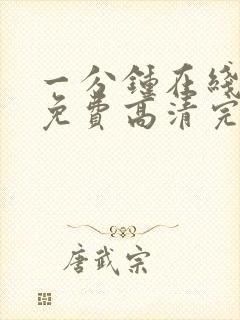 一分鍾在綫
免費高清完
唐武宗